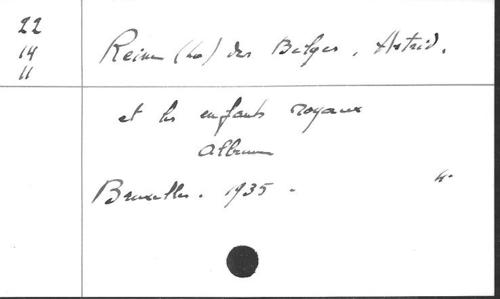 22
14
11
Reine (La) des Belges, Astrid.
et les enfants royaux
album
Bruxelles. 1935 -
4°